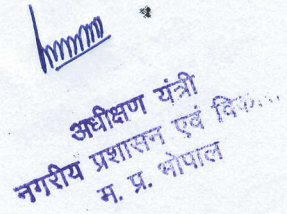 अधीक्षण यंत्री
नगरीय प्रशासन एवं
म. प्र. भोपाल